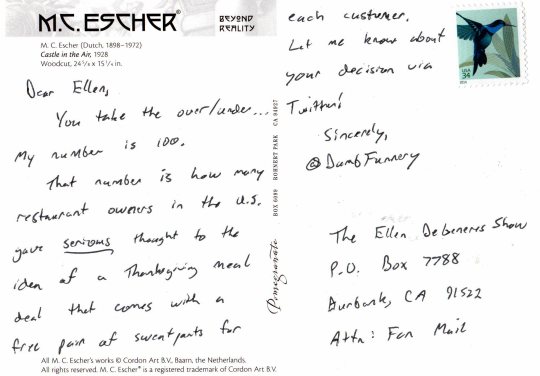 M.C. ESCHER®
BEYOND
REALITY
M. C. Escher (Dutch, 1898–1972)
Castle in the Air, 1928
Woodcut, 24 5/8 x 15 1/4 in.
Dear Ellen,
You take the over/under...
My number is 100.
That number is how many
restaurant owners in the U.S.
gave serious thought to the
idea of a Thanksgiving meal
deal that comes with a
free pair of sweatpants for
All M. C. Escher's works © Cordon Art B.V., Baarn, the Netherlands.
All rights reserved. M. C. Escher® is a registered trademark of Cordon Art B.V.
Pomegranate
BOX 6099 ROHNERT PARK CA 94927
each customer.
Let me know about
your decision via
Twitter!
Sincerely,
@DumbFunnery
USA
34
The Ellen DeGeneres Show
P.O. Box 7788
Burbank, CA 91522
Attn: Fan Mail